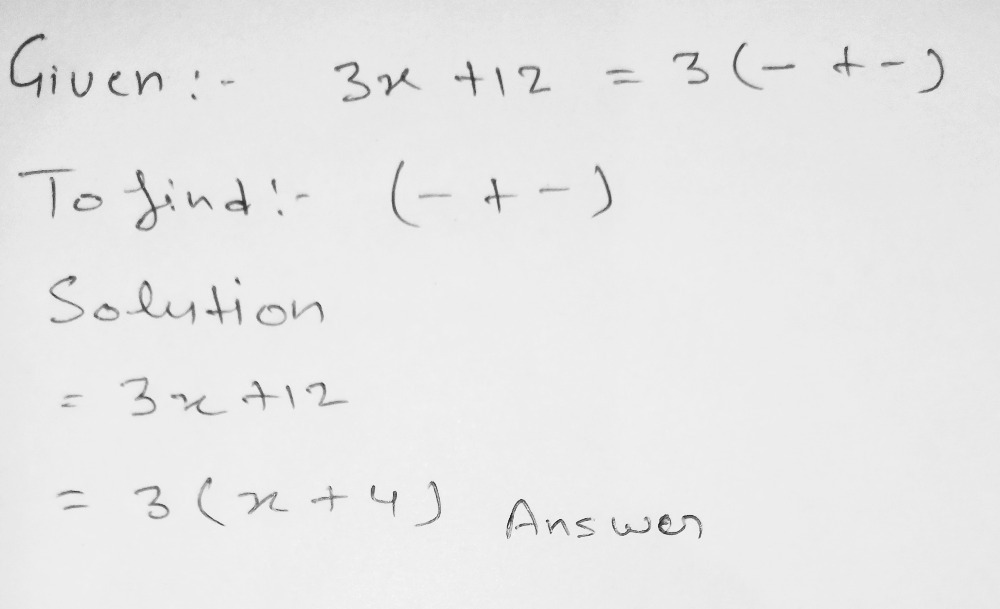 Given :- 3x +12 = 3 (- + -)
To find :- (- + -)
Solution
= 3x +12
= 3 (x + 4) Answer